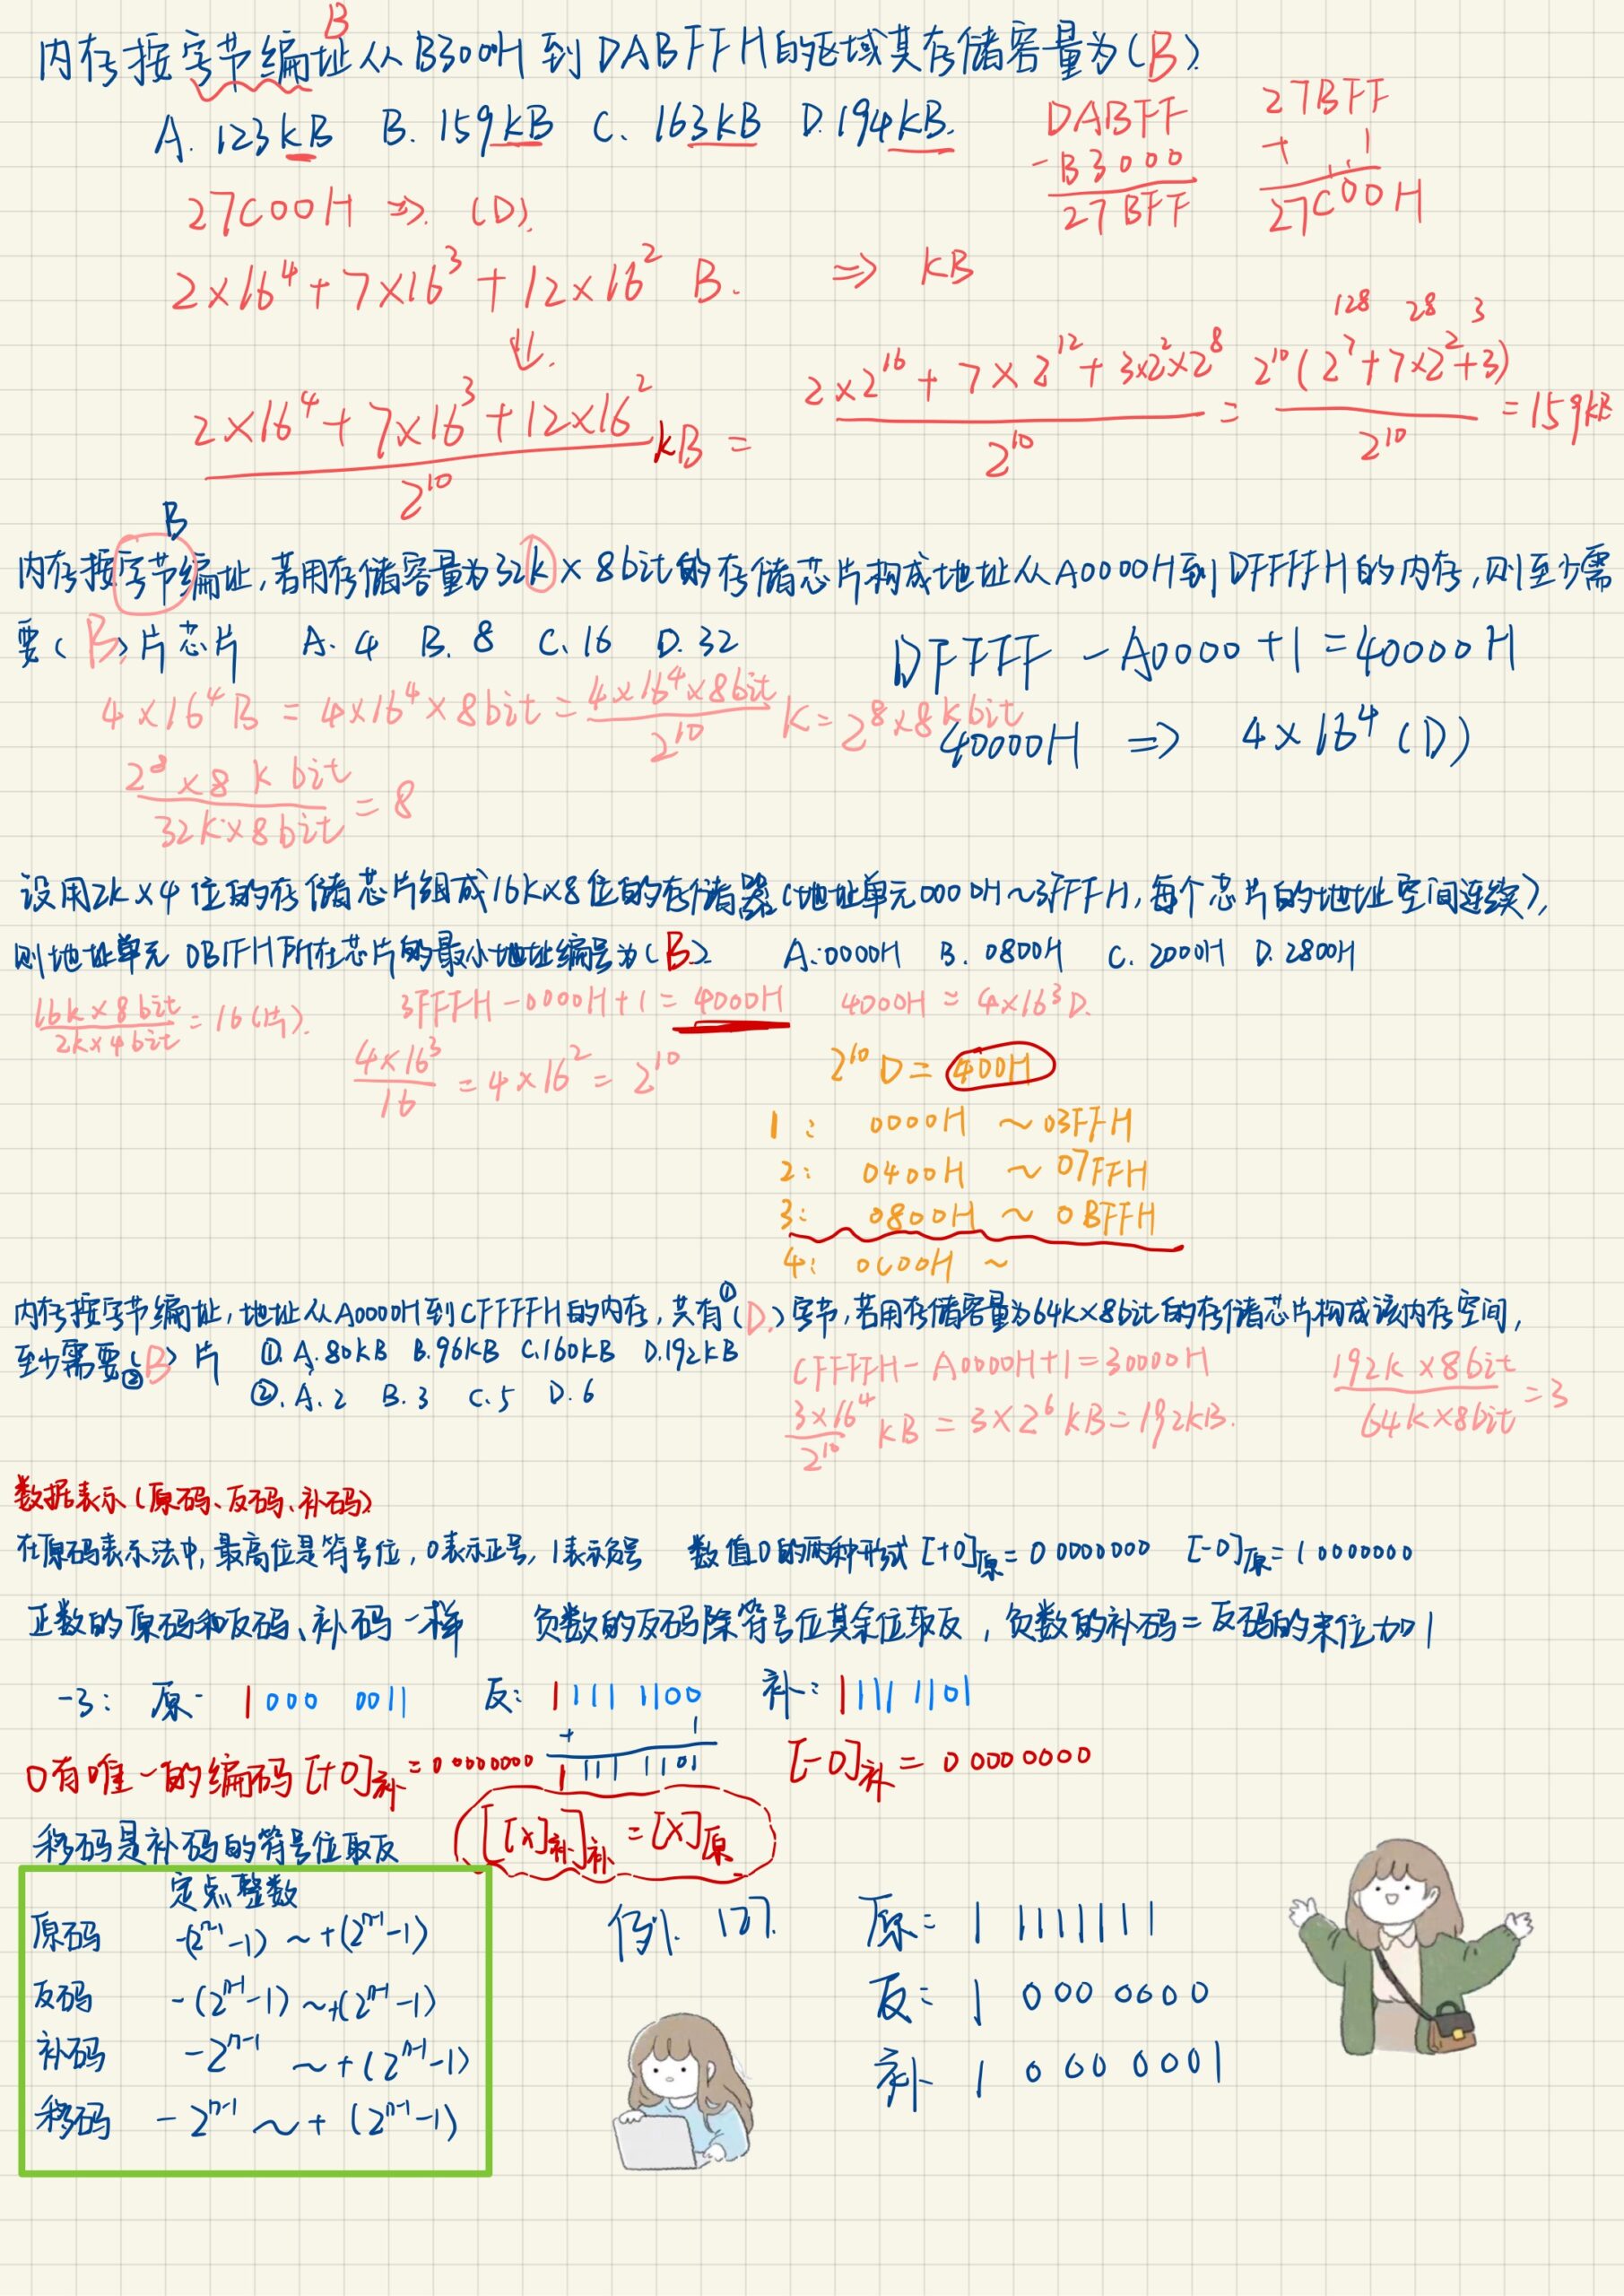 B
内存按字节编址从B300H到DABFFH的区域其存储容量为(B)
A. 123kB B. 159kB C. 163kB D. 194kB.
DABFF
-B3000
27BFF
27BFF
+ 1
27C00H
27C00H ⇒ (D).
2×16⁴+7×16³+12×16² B. ⇒ kB
128 28 3
(2×16⁴+7×16³+12×16²)/2¹⁰ kB = (2×2¹⁶+7×2¹²+3×2²×2⁸)/2¹⁰ = 2¹⁰(2⁷+7×2²+3)/2¹⁰ = 159kB
B
内存按字节编址,若用存储容量为32k×8bit的存储芯片构成地址从A0000H到DFFFFH的内存,则至少需
要(B)片芯片 A. 4 B. 8 C. 16 D. 32
DFFFF - A0000 + 1 = 40000H
4×16⁴B = 4×16⁴×8bit = (4×16⁴×8bit)/2¹⁰ K = 2⁸×8 kbit
40000H ⇒ 4×16⁴ (D)
(2⁸×8 k bit)/(32k×8bit) = 8
设用2k×4位的存储芯片组成16k×8位的存储器(地址单元0000H~3FFFH,每个芯片的地址空间连续),
则地址单元0B1FH所在芯片的最小地址编号为(B) A.0000H B. 0800H C. 2000H D. 2800H
(16k×8bit)/(2k×4bit) = 16(片).
3FFFH-0000H+1 = 4000H 4000H = 4×16³D.
(4×16³)/16 = 4×16² = 2¹⁰
2¹⁰D = 400H
1: 0000H ~ 03FFH
2: 0400H ~ 07FFH
3: 0800H ~ 0BFFH
4: 0C00H ~
内存按字节编址,地址从A0000H到CFFFFH的内存,共有①(D.)字节,若用存储容量为64k×8bit的存储芯片构成该内存空间,
至少需要②(B)片 ①. A.80kB B.96kB C.160kB D.192kB
②. A. 2 B. 3 C. 5 D. 6
CFFFFH-A0000H+1=30000H
(3×16⁴)/2¹⁰ kB = 3×2⁶ kB = 192kB.
(192k×8bit)/(64k×8bit) = 3
数据表示(原码、反码、补码)
在原码表示法中,最高位是符号位,0表示正号,1表示负号 数值0的两种形式 [+0]原=0 0000000 [-0]原=1 0000000
正数的原码和反码、补码一样 负数的反码除符号位其余位取反,负数的补码=反码的末位加1
-3: 原: 1000 0011 反: 11111 1100 补: 1111 1101
+ 1
1 111 1101
0有唯一的编码 [+0]补=0 0000000 [-0]补=0 0000000
移码是补码的符号位取反
[[X]补]补=[X]原
定点整数
原码 -(2ⁿ⁻¹-1) ~ +(2ⁿ⁻¹-1)
反码 -(2ⁿ⁻¹-1) ~ +(2ⁿ⁻¹-1)
补码 -2ⁿ⁻¹ ~ +(2ⁿ⁻¹-1)
移码 -2ⁿ⁻¹ ~ + (2ⁿ⁻¹-1)
例. 127.
原: 1 1111111
反: 1 000 0000
补 1 000 0001